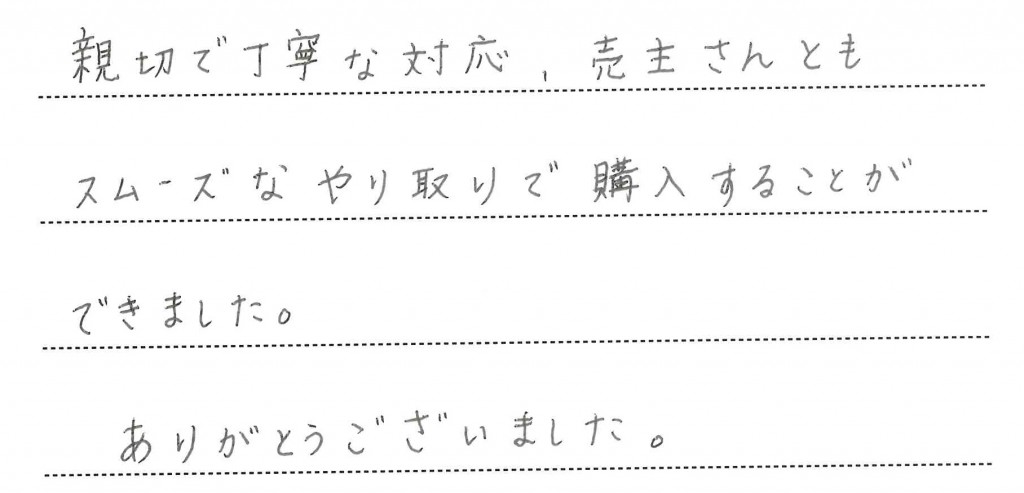 親切で丁寧な対応、売主さんとも
スムーズなやり取りで購入することが
できました。
ありがとうございました。